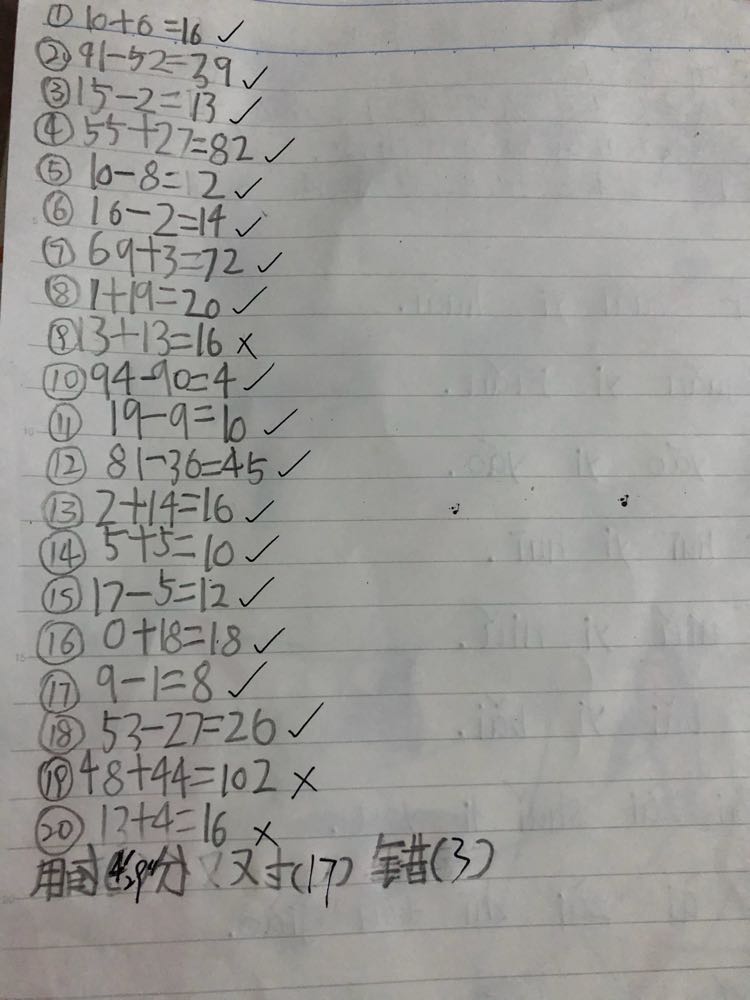 ① 10+6=16 ✓
② 91-52=39 ✓
③ 15-2=13 ✓
④ 55+27=82 ✓
⑤ 10-8=2 ✓
⑥ 16-2=14 ✓
⑦ 69+3=72 ✓
⑧ 1+19=20 ✓
⑨ 13+13=16 ×
⑩ 94-90=4 ✓
⑪ 19-9=10 ✓
⑫ 81-36=45 ✓
⑬ 2+14=16 ✓
⑭ 5+5=10 ✓
⑮ 17-5=12 ✓
⑯ 0+18=18 ✓
⑰ 9-1=8 ✓
⑱ 53-27=26 ✓
⑲ 48+44=102 ×
⑳ 13+4=16 ×
用时 分 对(17) 错(3)